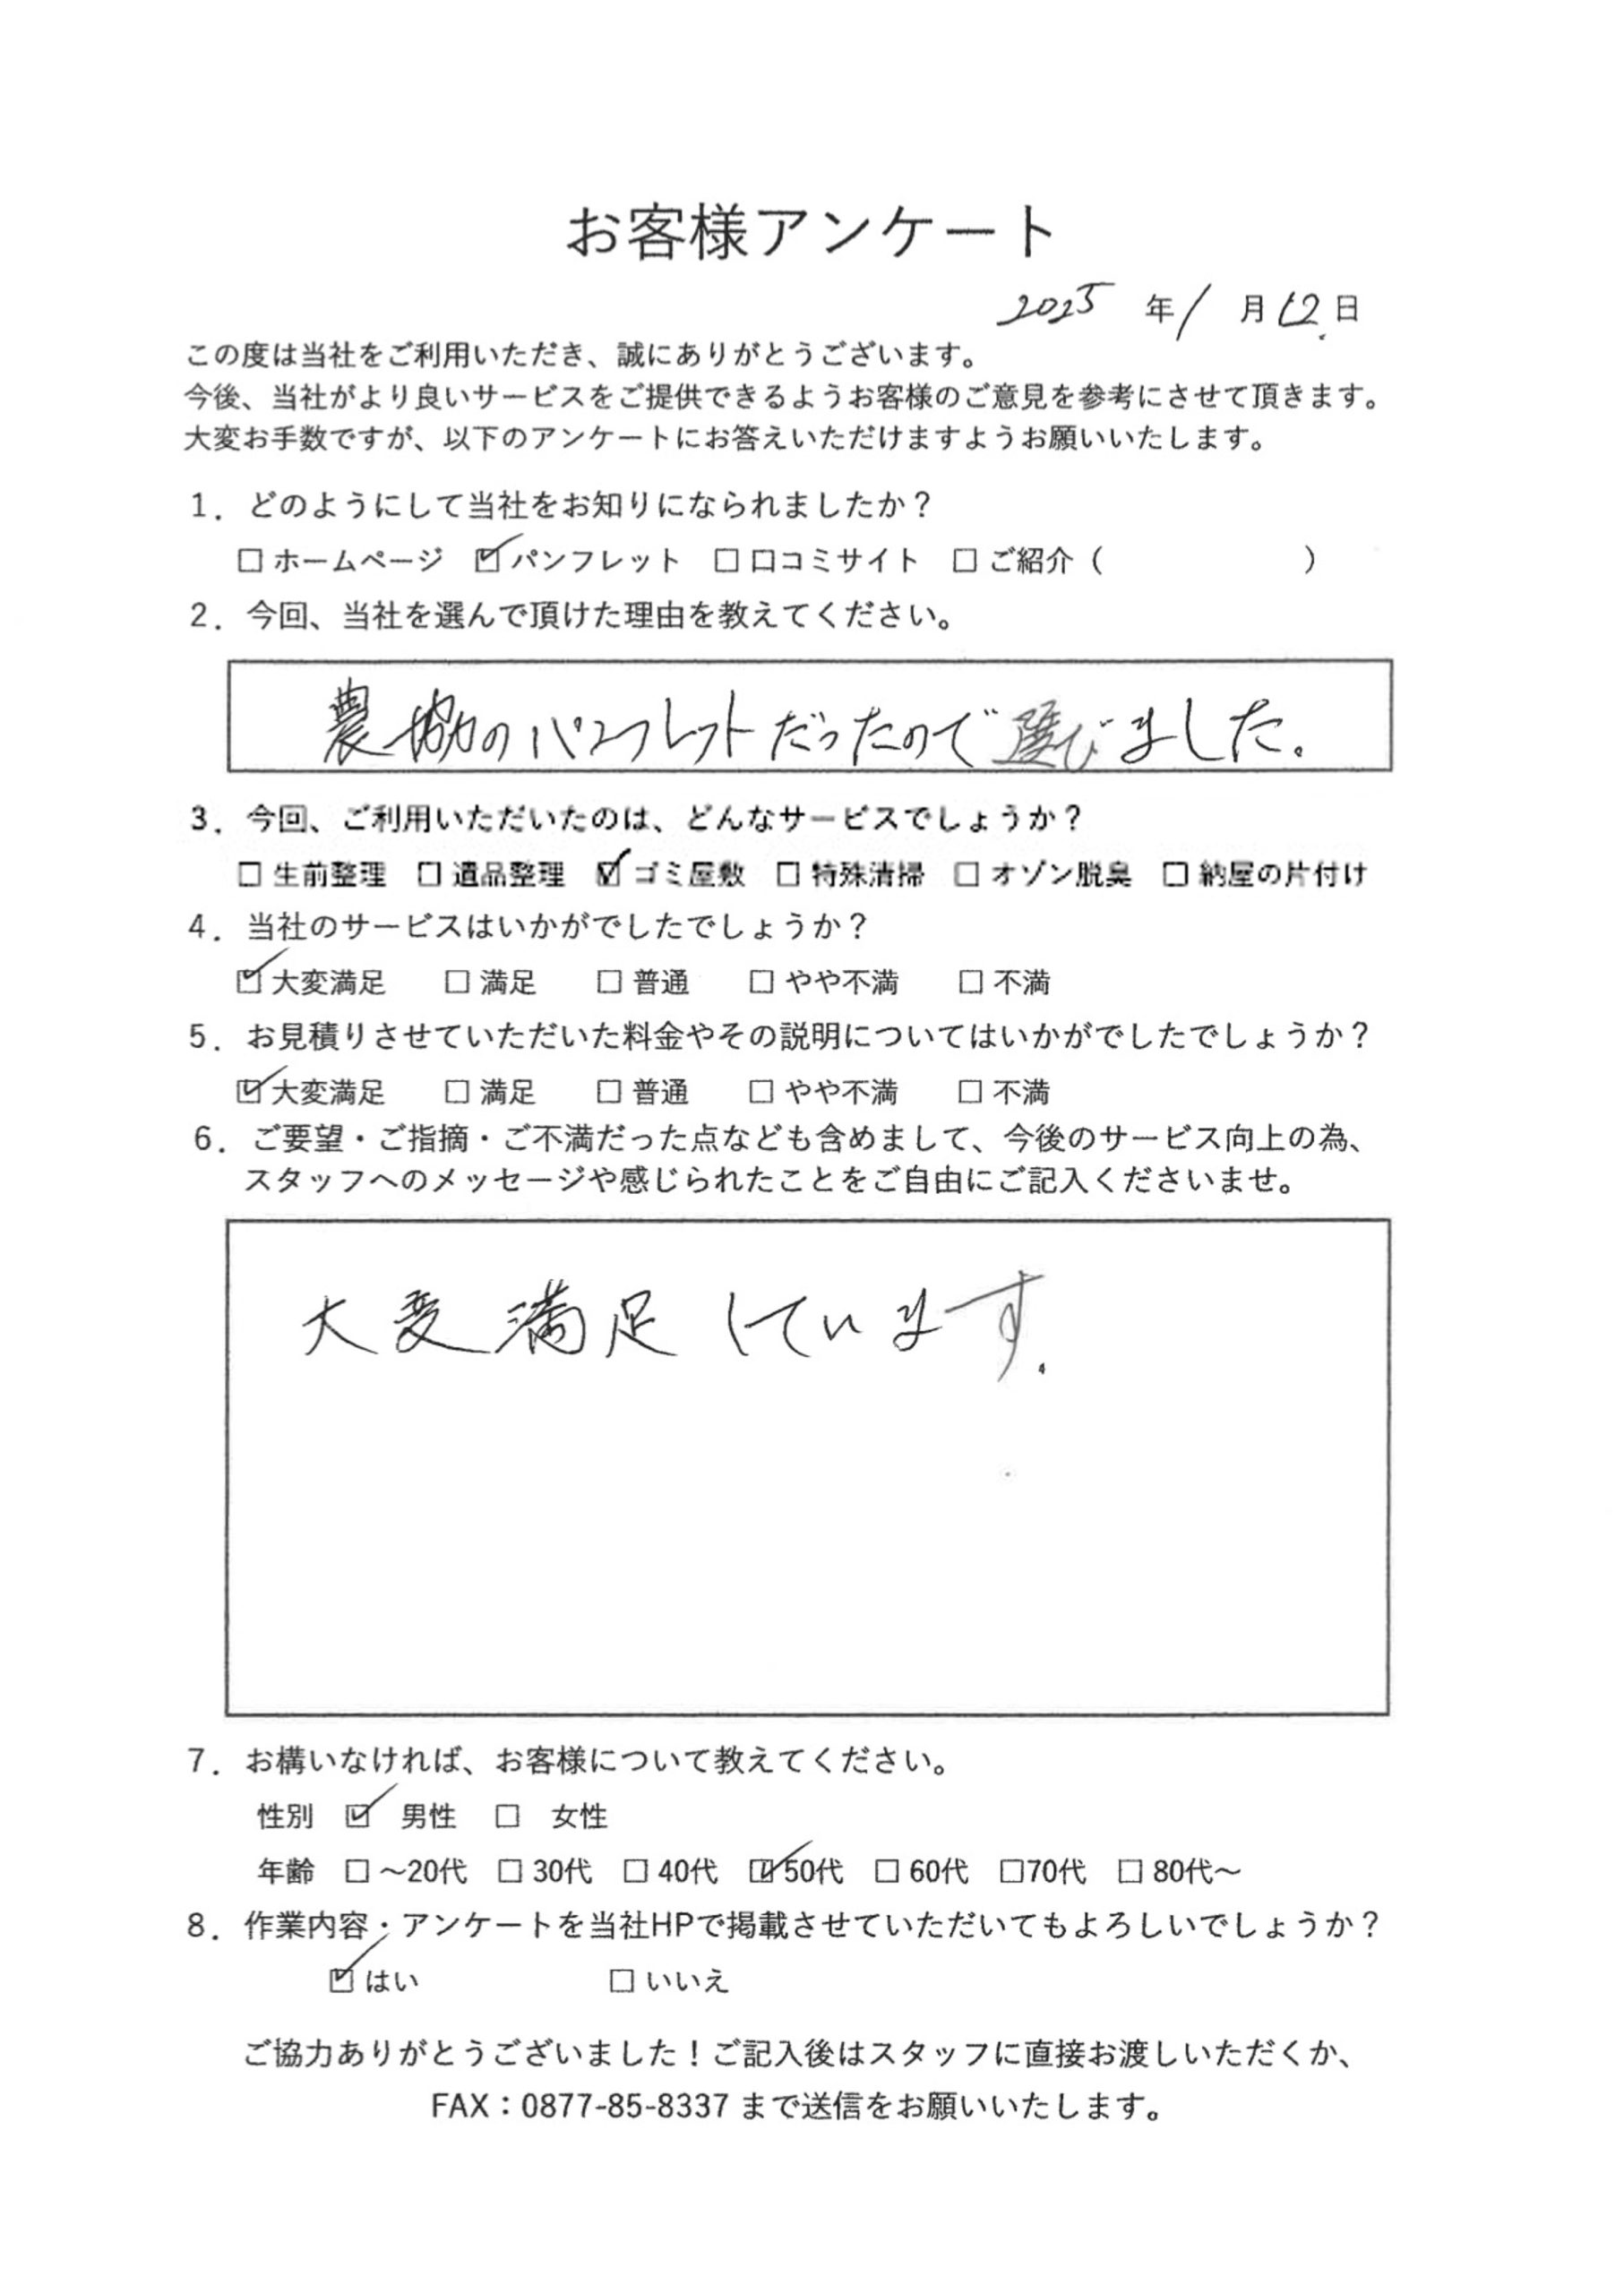 お客様アンケート
2025 年 1 月 12 日
この度は当社をご利用いただき、誠にありがとうございます。
今後、当社がより良いサービスをご提供できるようお客様のご意見を参考にさせて頂きます。
大変お手数ですが、以下のアンケートにお答えいただけますようお願いいたします。
1．どのようにして当社をお知りになられましたか？
□ ホームページ ☑ パンフレット □ 口コミサイト □ ご紹介（ ）
2．今回、当社を選んで頂けた理由を教えてください。
農協のパンフレットだったので選びました。
3．今回、ご利用いただいたのは、どんなサービスでしょうか？
□ 生前整理 □ 遺品整理 ☑ ゴミ屋敷 □ 特殊清掃 □ オゾン脱臭 □ 納屋の片付け
4．当社のサービスはいかがでしたでしょうか？
☑ 大変満足 □ 満足 □ 普通 □ やや不満 □ 不満
5．お見積りさせていただいた料金やその説明についてはいかがでしたでしょうか？
☑ 大変満足 □ 満足 □ 普通 □ やや不満 □ 不満
6．ご要望・ご指摘・ご不満だった点なども含めまして、今後のサービス向上の為、
スタッフへのメッセージや感じられたことをご自由にご記入くださいませ。
大変満足しています.
7．お構いなければ、お客様について教えてください。
性別 ☑ 男性 □ 女性
年齢 □ ～20代 □ 30代 □ 40代 ☑ 50代 □ 60代 □70代 □ 80代～
8．作業内容・アンケートを当社HPで掲載させていただいてもよろしいでしょうか？
☑ はい □ いいえ
ご協力ありがとうございました！ご記入後はスタッフに直接お渡しいただくか、
FAX：0877-85-8337 まで送信をお願いいたします。